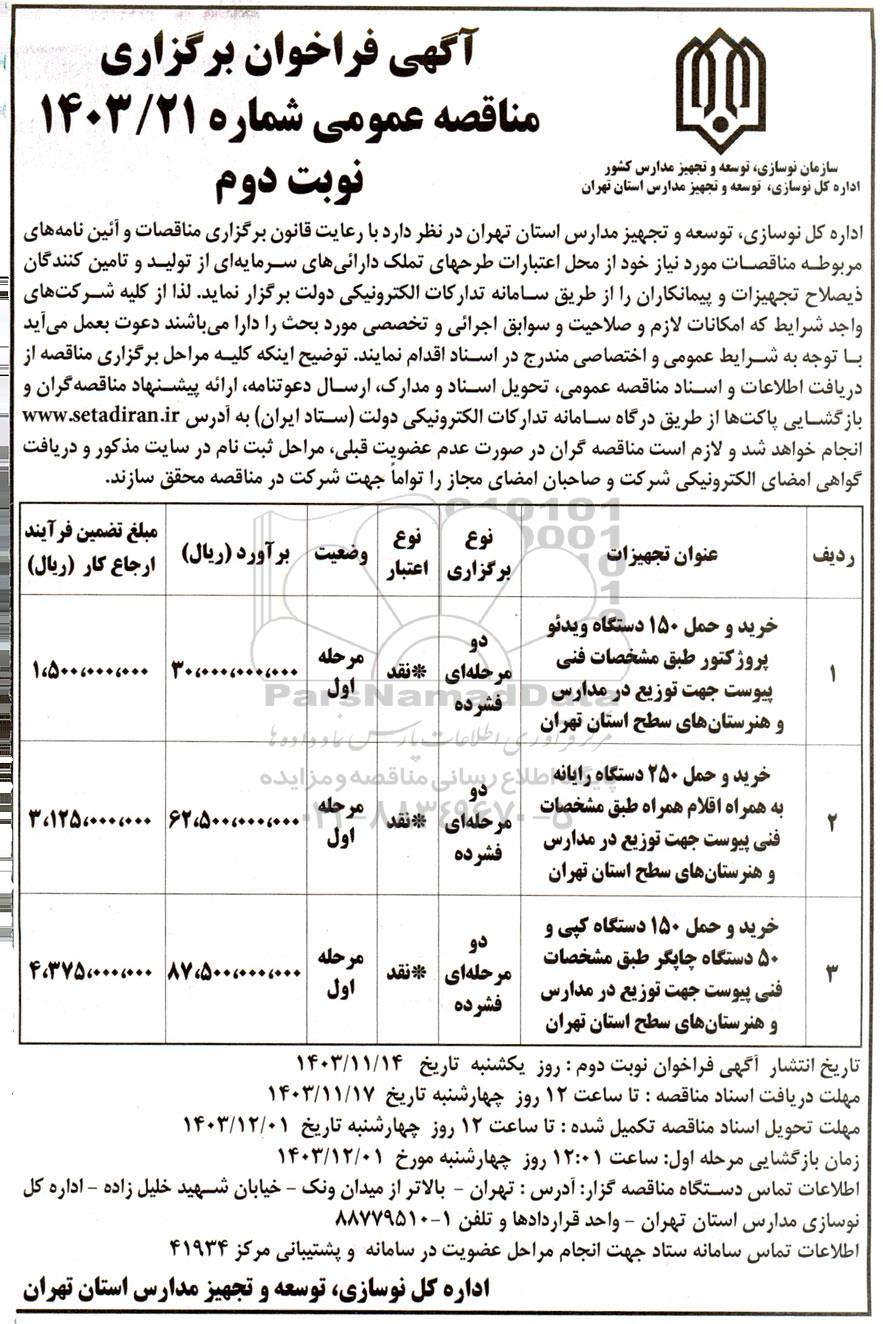 آگهی فراخوان برگزاری
مناقصه عمومی شماره ۱۴۰۳/۲۱
نوبت دوم
سازمان نوسازی، توسعه و تجهیز مدارس کشور
اداره کل نوسازی، توسعه و تجهیز مدارس استان تهران
اداره کل نوسازی، توسعه و تجهیز مدارس استان تهران در نظر دارد با رعایت قانون برگزاری مناقصات و آئین نامه‌های
مربوطه مناقصات مورد نیاز خود از محل اعتبارات طرحهای تملک دارائی‌های سرمایه‌ای از تولید و تامین کنندگان
ذیصلاح تجهیزات و پیمانکاران را از طریق سامانه تدارکات الکترونیکی دولت برگزار نماید. لذا از کلیه شرکت‌های
واجد شرایط که امکانات لازم و صلاحیت و سوابق اجرائی و تخصصی مورد بحث را دارا می‌باشند دعوت بعمل می‌آید
با توجه به شرایط عمومی و اختصاصی مندرج در اسناد اقدام نمایند. توضیح اینکه کلیه مراحل برگزاری مناقصه از
دریافت اطلاعات و اسناد مناقصه عمومی، تحویل اسناد و مدارک، ارسال دعوتنامه، ارائه پیشنهاد مناقصه‌گران و
بازگشایی پاکت‌ها از طریق درگاه سامانه تدارکات الکترونیکی دولت (ستاد ایران) به آدرس www.setadiran.ir
انجام خواهد شد و لازم است مناقصه گران در صورت عدم عضویت قبلی، مراحل ثبت نام در سایت مذکور و دریافت
گواهی امضای الکترونیکی شرکت و صاحبان امضای مجاز را تواماً جهت شرکت در مناقصه محقق سازند.
ردیف عنوان تجهیزات نوع برگزاری نوع اعتبار وضعیت برآورد (ریال) مبلغ تضمین فرآیند ارجاع کار (ریال)
۱
خرید و حمل ۱۵۰ دستگاه ویدئو
پروژکتور طبق مشخصات فنی
پیوست جهت توزیع در مدارس
و هنرستان‌های سطح استان تهران
دو مرحله‌ای فشرده
*نقد
مرحله اول
۳۰،۰۰۰،۰۰۰،۰۰۰
۱،۵۰۰،۰۰۰،۰۰۰
۲
خرید و حمل ۲۵۰ دستگاه رایانه
به همراه اقلام همراه طبق مشخصات
فنی پیوست جهت توزیع در مدارس
و هنرستان‌های سطح استان تهران
دو مرحله‌ای فشرده
*نقد
مرحله اول
۶۲،۵۰۰،۰۰۰،۰۰۰
۳،۱۲۵،۰۰۰،۰۰۰
۳
خرید و حمل ۱۵۰ دستگاه کپی و
۵۰ دستگاه چاپگر طبق مشخصات
فنی پیوست جهت توزیع در مدارس
و هنرستان‌های سطح استان تهران
دو مرحله‌ای فشرده
*نقد
مرحله اول
۸۷،۵۰۰،۰۰۰،۰۰۰
۴،۳۷۵،۰۰۰،۰۰۰
ParsNamadData
مرکز فرآوری اطلاعات پارس نماد داده‌ها
پایگاه اطلاع رسانی مناقصه و مزایده
۰۲۱-۸۸۳۴۹۶۷۰-۵
تاریخ انتشار آگهی فراخوان نوبت دوم : روز یکشنبه تاریخ ۱۴۰۳/۱۱/۱۴
مهلت دریافت اسناد مناقصه : تا ساعت ۱۲ روز چهارشنبه تاریخ ۱۴۰۳/۱۱/۱۷
مهلت تحویل اسناد مناقصه تکمیل شده : تا ساعت ۱۲ روز چهارشنبه تاریخ ۱۴۰۳/۱۲/۰۱
زمان بازگشایی مرحله اول: ساعت ۱۲:۰۱ روز چهارشنبه مورخ ۱۴۰۳/۱۲/۰۱
اطلاعات تماس دستگاه مناقصه گزار: آدرس : تهران – بالاتر از میدان ونک – خیابان شهید خلیل زاده – اداره کل
نوسازی مدارس استان تهران – واحد قراردادها و تلفن ۱-۸۸۷۷۹۵۱۰
اطلاعات تماس سامانه ستاد جهت انجام مراحل عضویت در سامانه و پشتیبانی مرکز ۴۱۹۳۴
اداره کل نوسازی، توسعه و تجهیز مدارس استان تهران